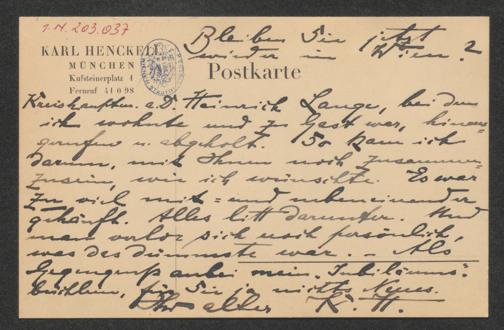 I.N. 203.037
Bleiben Sie jetzt
wieder in Wien?
KARL HENCKELL
MÜNCHEN
Kufsteinerplatz 4
Fernruf 41098
Postkarte
Kreishauptm. a.D. Heinrich Lange, bei dem
ich wohnte und zu Gast war, hinaus-
gerufen u. abgeholt. So kam ich
darum, mit Ihnen noch zusammen-
zusein, wie ich wünschte. Es war
zu viel mit- und nebeneinander
gehäuft. Alles litt darunter. Und
man verlor sich noch persönlich,
was das Dümmste war. — Als
Gegengruß anbei mein Jubiläums-
büchlein, für Sie ja nichts Neues.
Ihr alter K. H.